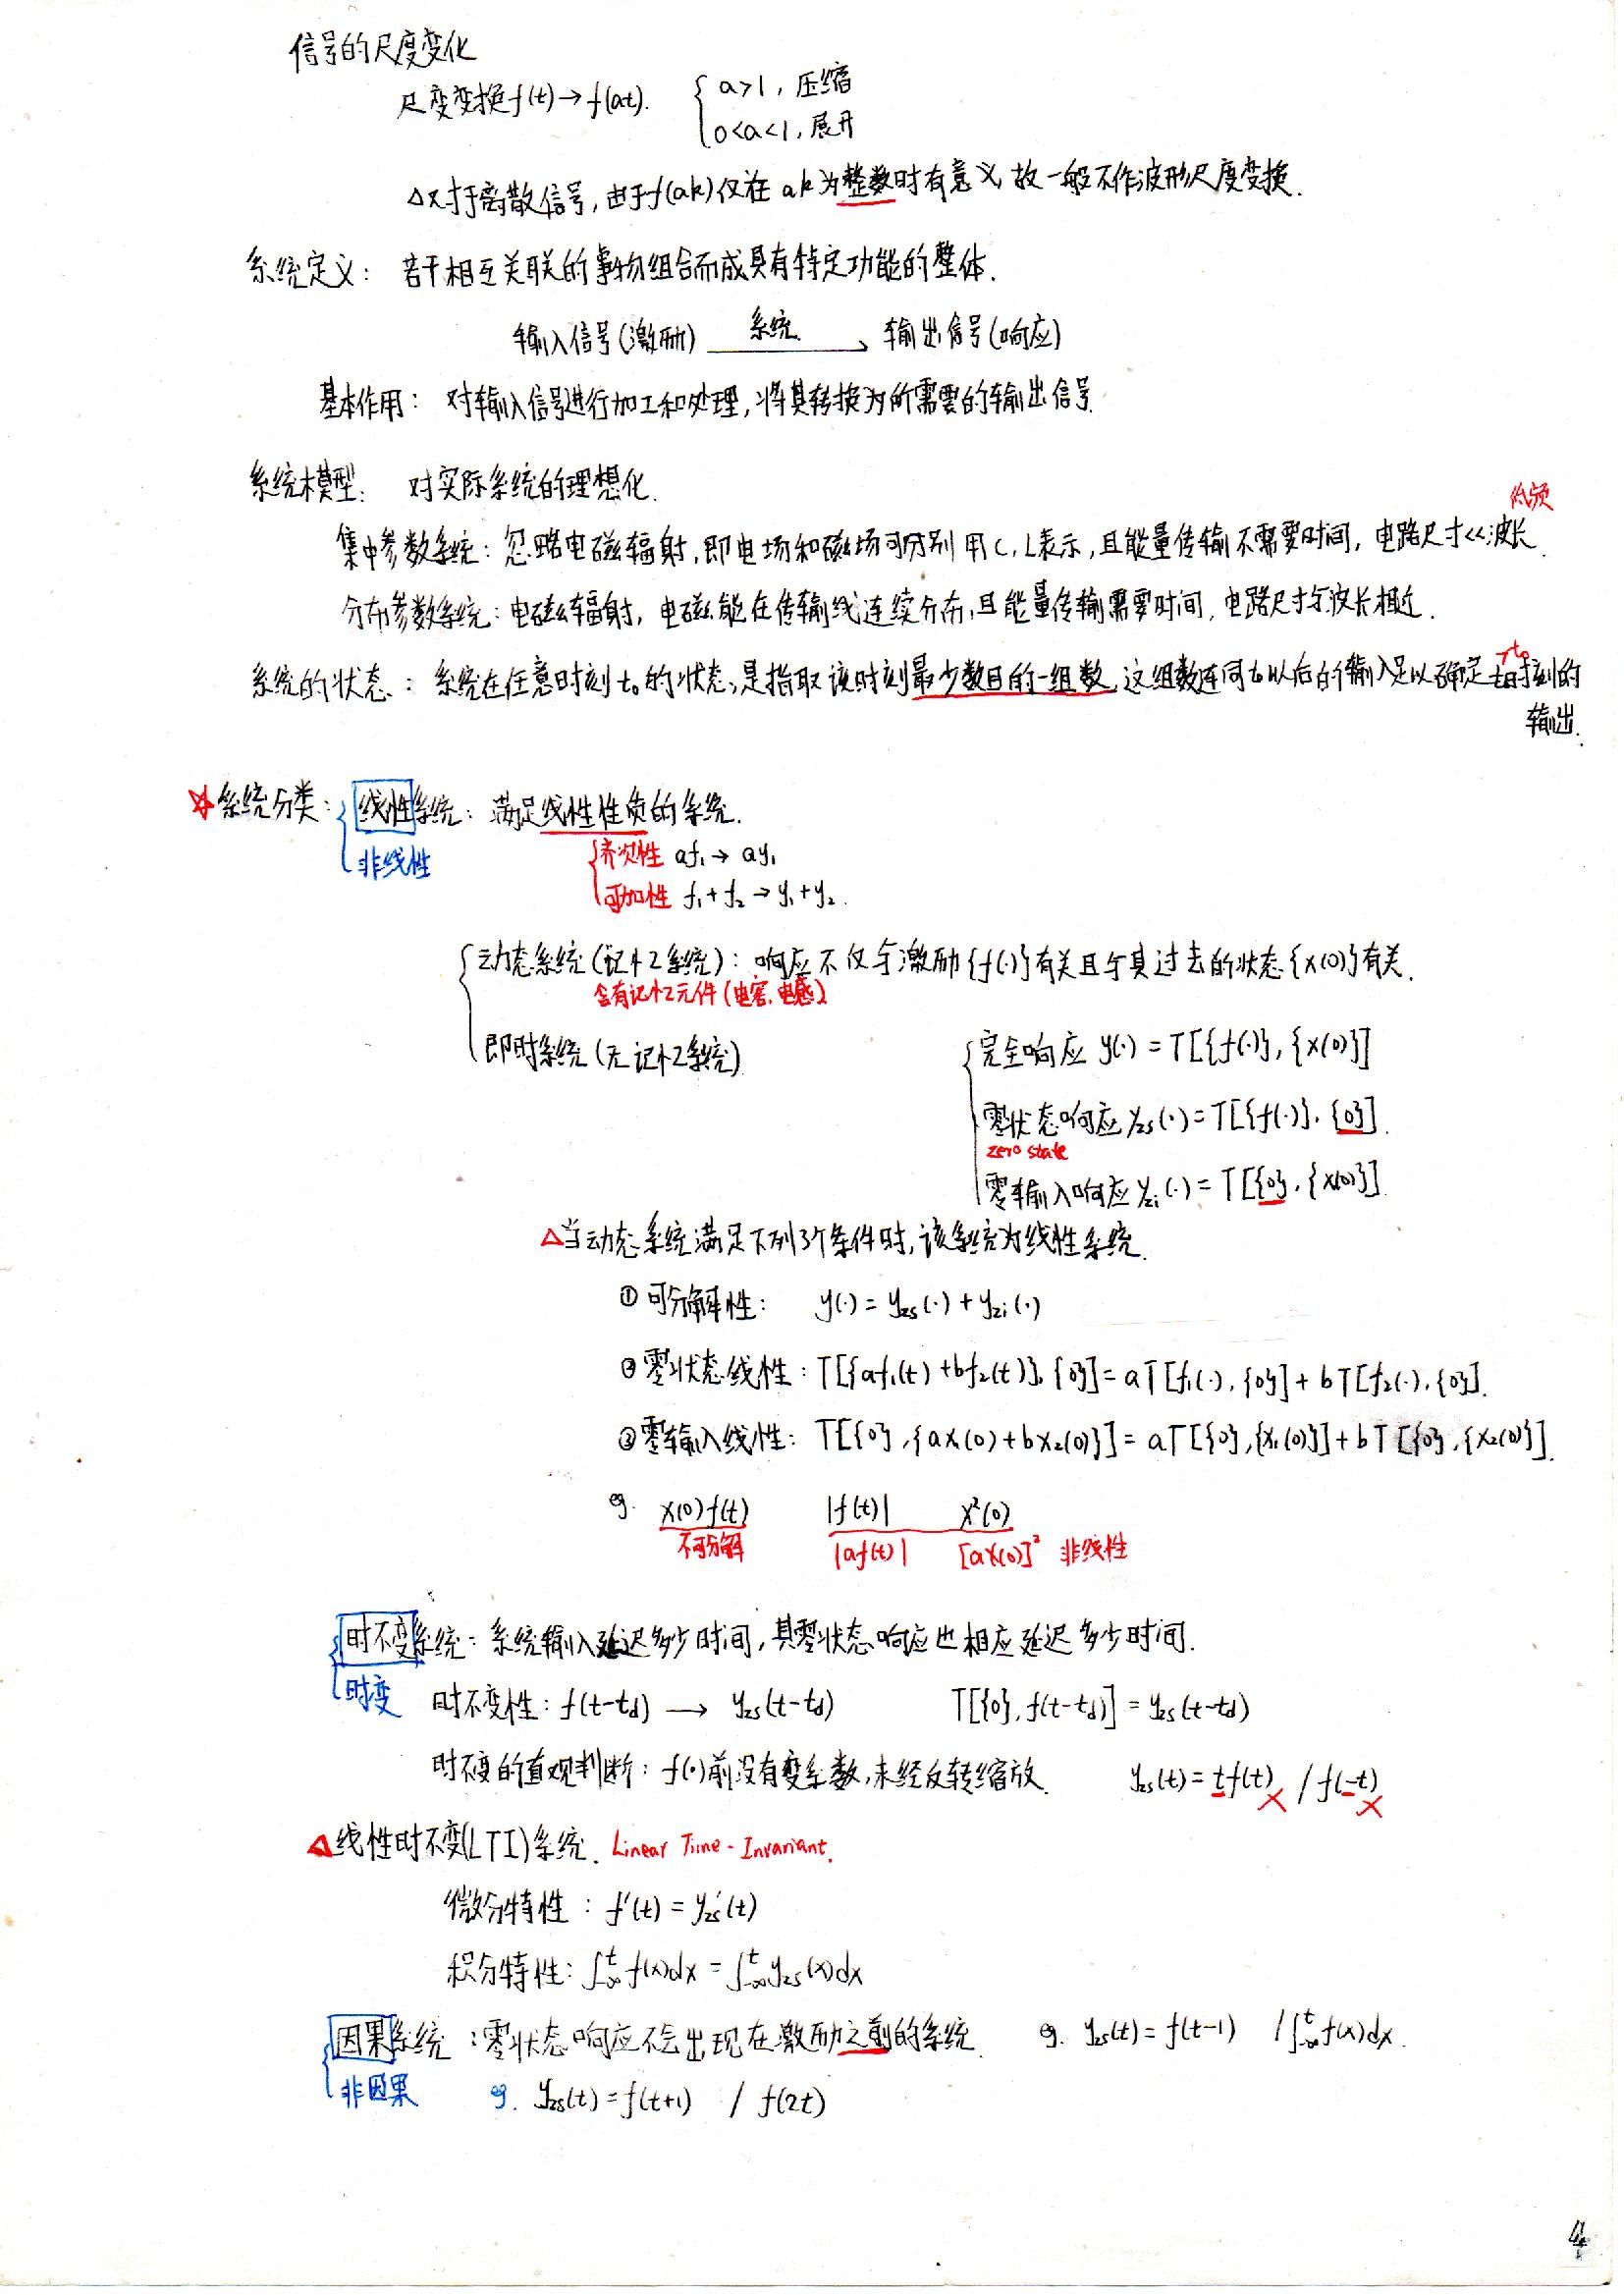 信号的尺度变化
尺度变换f(t)→f(at). { a>1, 压缩
0<a<1, 展开
△对于离散信号, 由于f(ak)仅在ak为整数时有意义, 故一般不作波形尺度变换.
系统定义: 若干相互关联的事物组合而成具有特定功能的整体.
输入信号(激励) 系统→ 输出信号(响应)
基本作用: 对输入信号进行加工和处理, 将其转换为所需要的输出信号.
系统模型: 对实际系统的理想化.
低频
集中参数系统: 忽略电磁辐射, 即电场和磁场可分别用C, L表示, 且能量传输不需要时间, 电路尺寸<<波长.
分布参数系统: 电磁辐射, 电磁能在传输线连续分布, 且能量传输需要时间, 电路尺寸与波长相近.
系统的状态: 系统在任意时刻t₀的状态, 是指取该时刻最少数目的一组数, 这组数连同t₀以后的输入足以确定t₀时刻的
输出.
☆系统分类: { 线性系统: 满足线性性质的系统.
非线性
{ 齐次性 af₁→ay₁
可加性 f₁+f₂→y₁+y₂.
{ 动态系统(记忆系统): 响应不仅与激励{f(·)}有关且与其过去的状态{x(0)}有关.
含有记忆元件(电容、电感)
即时系统(无记忆系统)
{ 完全响应 y(·)=T[{f(·)}, {x(0)}]
零状态响应 yzs(·)=T[{f(·)}, {0}].
zero state
零输入响应 yzi(·)=T[{0}, {x(0)}]
△当动态系统满足下列3个条件时, 该系统为线性系统.
① 可分解性: y(·)=yzs(·)+yzi(·)
② 零状态线性: T[{af₁(t)+bf₂(t)}, {0}]=aT[f₁(·), {0}]+bT[f₂(·), {0}].
③ 零输入线性: T[{0}, {ax₁(0)+bx₂(0)}]=aT[{0}, {x₁(0)}]+bT[{0}, {x₂(0)}].
eg. x(0)f(t) |f(t)| x²(0)
不可分解 |af(t)| [ax(0)]² 非线性
{ 时不变系统: 系统输入延迟多少时间, 其零状态响应也相应延迟多少时间.
时变 时不变性: f(t-td) → yzs(t-td) T[{0}, f(t-td)]=yzs(t-td)
时不变的直观判断: f(·)前没有变系数, 未经反转缩放. yzs(t)=tf(t)× / f(-t)×
△线性时不变(LTI)系统. Linear Time-Invariant.
微分特性: f'(t)=yzs'(t)
积分特性: ∫₋∞ᵗ f(x)dx=∫₋∞ᵗ yzs(x)dx
{ 因果系统: 零状态响应不会出现在激励之前的系统. eg. yzs(t)=f(t-1) / ∫₋∞ᵗ f(x)dx.
非因果 eg. yzs(t)=f(t+1) / f(2t)
4